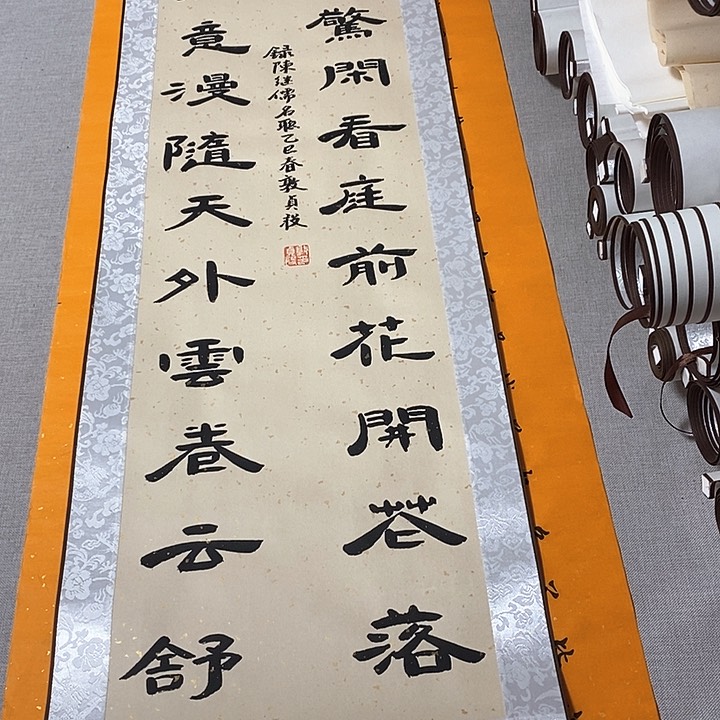 驚閑看庭前花開花落
意漫隨天外雲卷云舒
録陳继儒名聯乙巳春